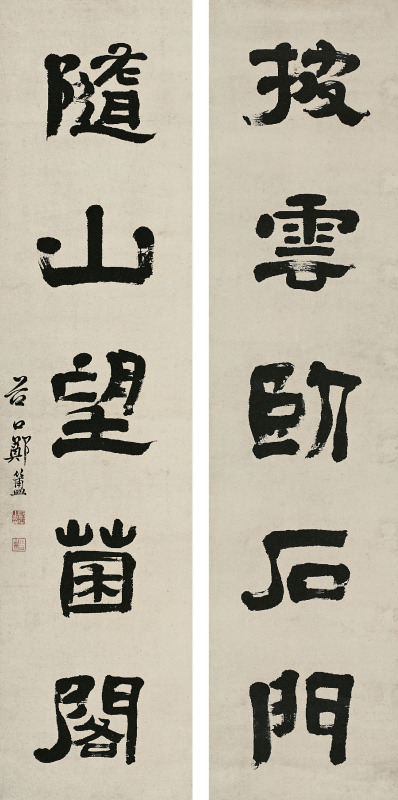 披雲臥石門
隨山望菌閣
谷口鄭簠